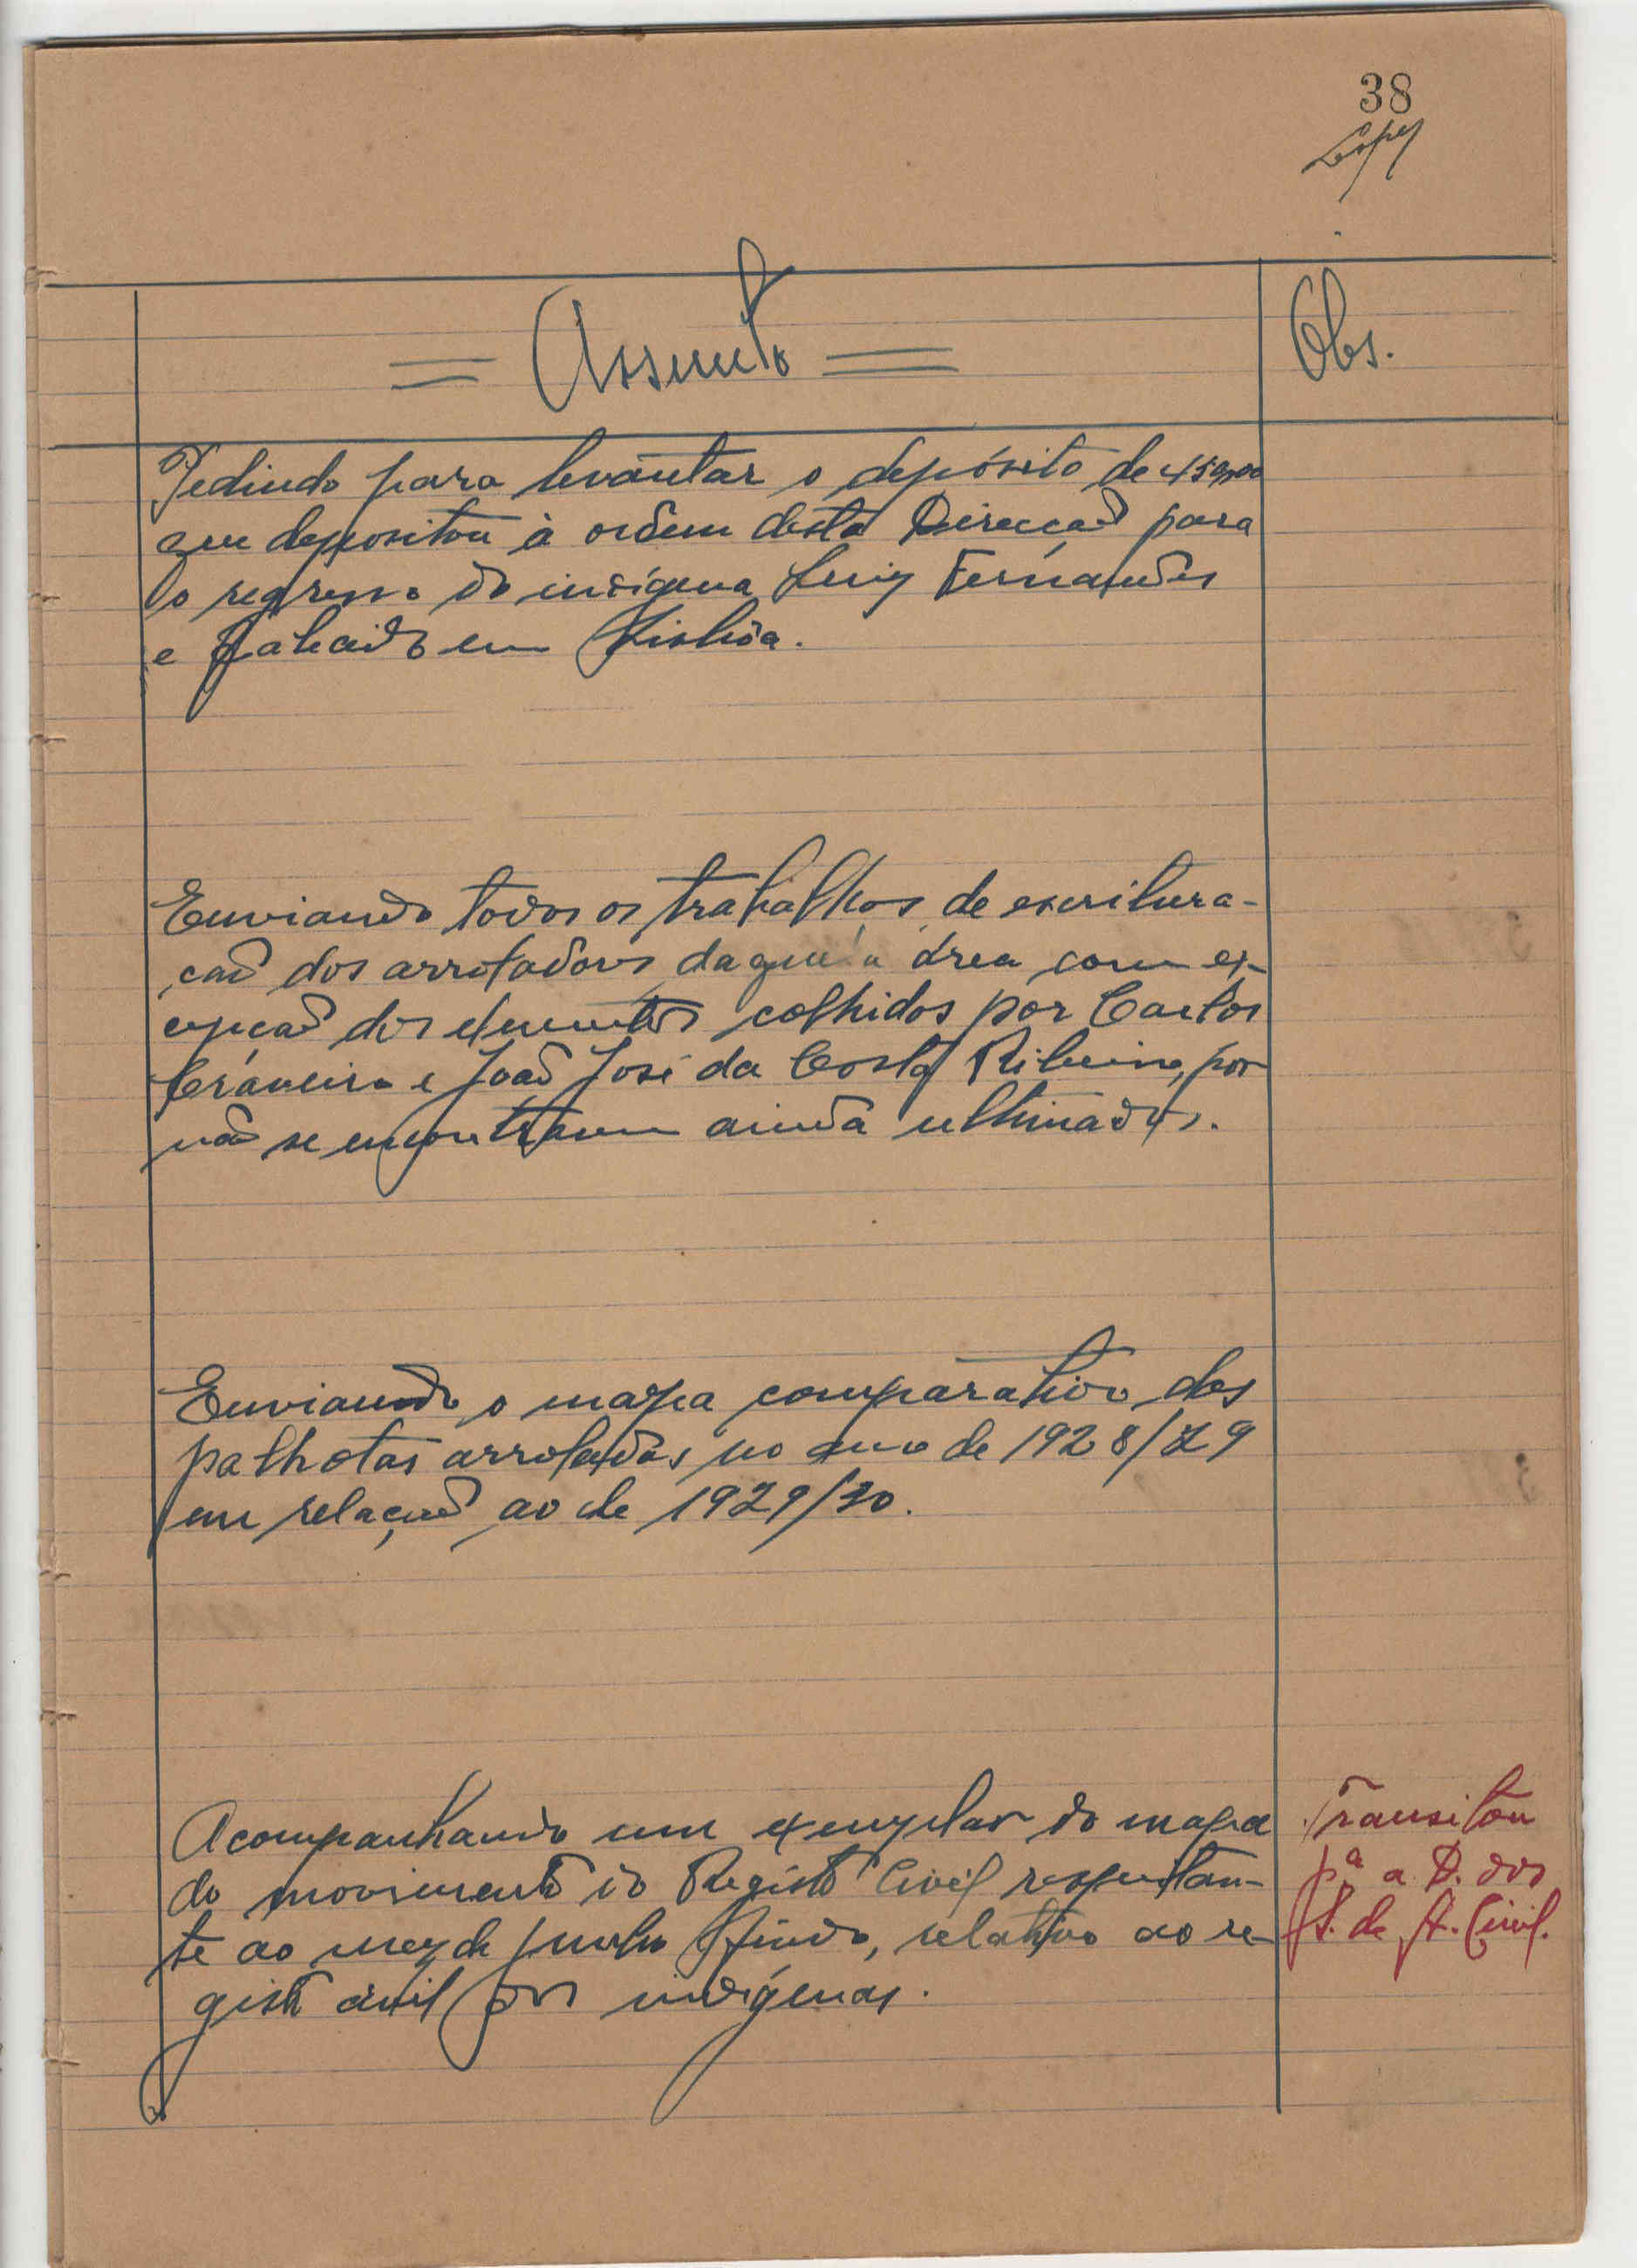 38
= Assunto =
Obs.
Pedindo para levantar o depósito de
que depositou à ordem desta Direcção para
o regresso do indígena Luiz Fernandes
e falecido em Lisbôa.
Enviando todos os trabalhos de escritura-
ção dos arroladores daquela área com ex-
cepção dos elementos colhidos por Carlos
Craveiro e João José da Costa Ribeiro, por
não se encontrarem ainda ultimados.
Enviando o mapa comparativo das
palhotas arroladas no ano de 1928/29
em relação ao de 1929/30.
Acompanhando um exemplar do mapa
do movimento do Registo Civil respeitan-
te ao mez de Junho findo, relativo ao re-
gisto civil dos indígenas.
Transitou
pª a D. dos
S. de A. Civil.